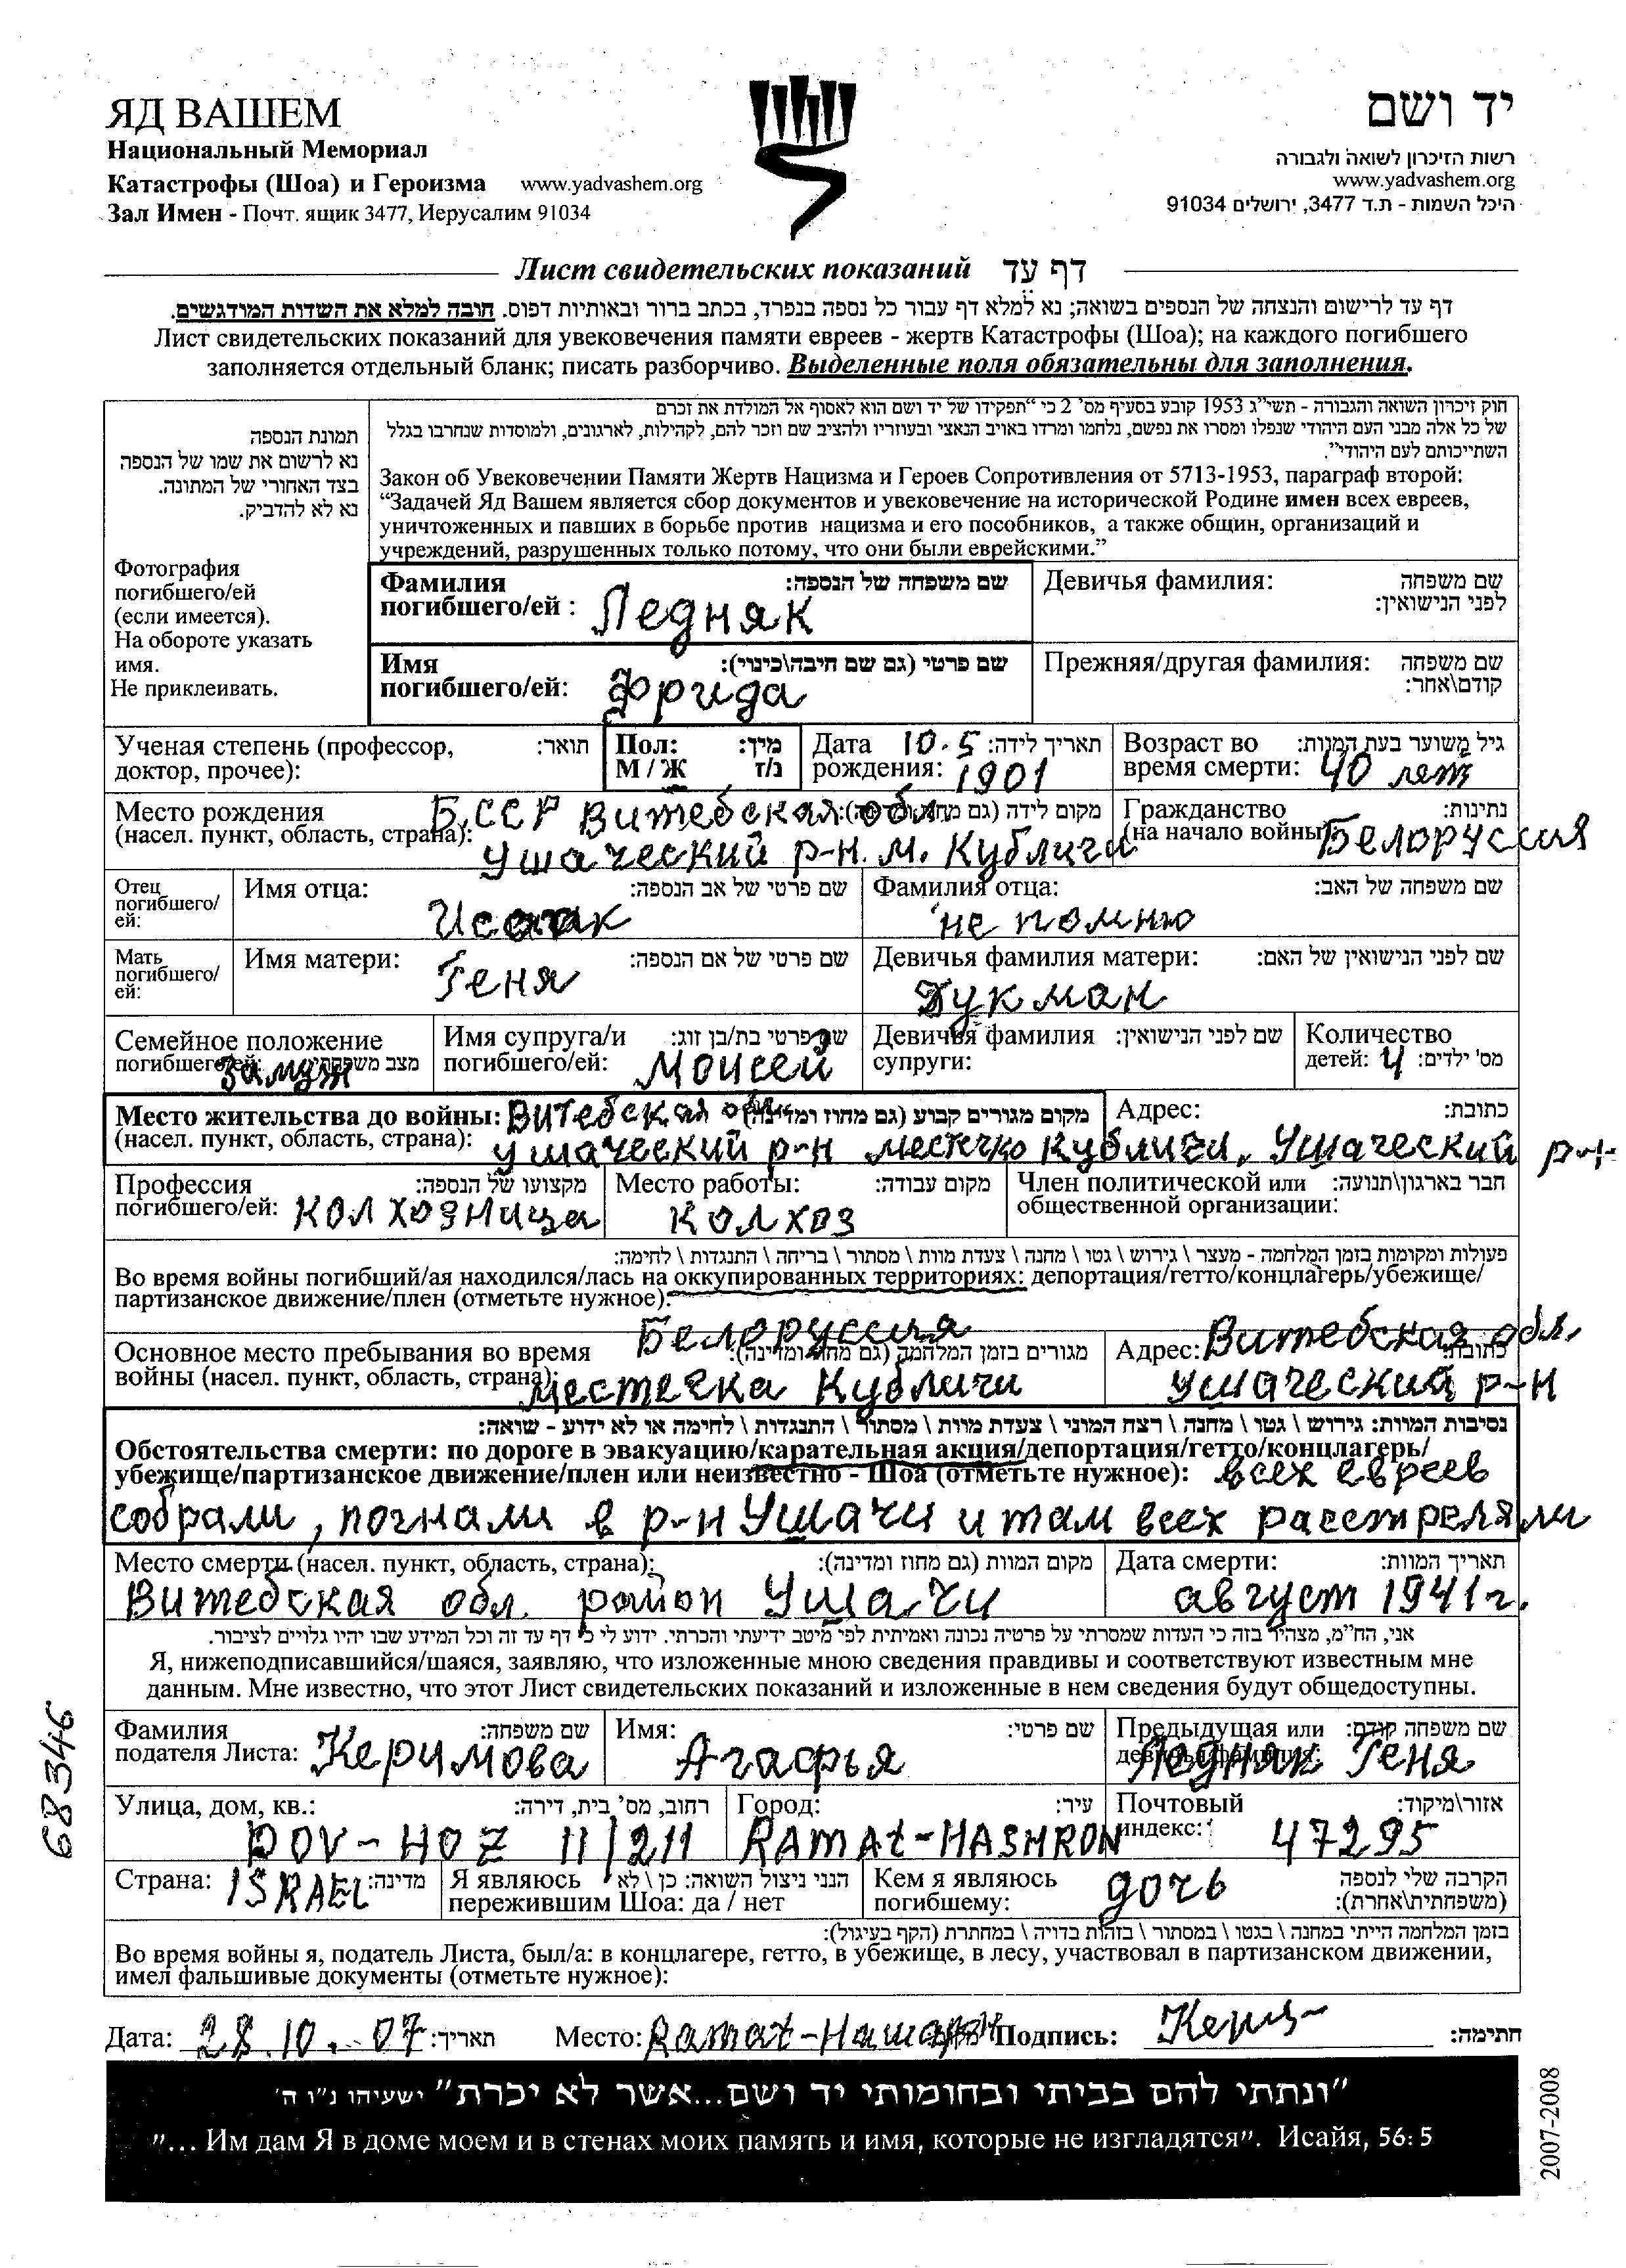 ЯД ВАШЕМ
Национальный Мемориал
Катастрофы (Шоа) и Героизма www.yadvashem.org
Зал Имен - Почт. ящик 3477, Иерусалим 91034
יד ושם
רשות הזיכרון לשואה ולגבורה
www.yadvashem.org
היכל השמות - ת.ד 3477, ירושלים 91034
Лист свидетельских показаний דף עד
דף עד לרישום והנצחה של הנספים בשואה; נא למלא דף עבור כל נספה בנפרד, בכתב ברור ובאותיות דפוס. חובה למלא את השדות המודגשים.
Лист свидетельских показаний для увековечения памяти евреев - жертв Катастрофы (Шоа); на каждого погибшего
заполняется отдельный бланк; писать разборчиво. Выделенные поля обязательны для заполнения.
תמונת הנספה
נא לרשום את שמו של הנספה
בצד האחורי של המתונה.
נא לא להדביק.
Фотография
погибшего/ей
(если имеется).
На обороте указать
имя.
Не приклеивать.
חוק זיכרון השואה והגבורה - תשי"ג 1953 קובע בסעיף מס' 2 כי "תפקידו של יד ושם הוא לאסוף אל המולדת את זכרם
של כל אלה מבני העם היהודי שנפלו ומסרו את נפשם, נלחמו ומרדו באויב הנאצי ובעוזריו ולהציב שם וזכר להם, לקהילות, לארגונים, ולמוסדות שנחרבו בגלל
השתייכותם לעם היהודי".
Закон об Увековечении Памяти Жертв Нацизма и Героев Сопротивления от 5713-1953, параграф второй:
"Задачей Яд Вашем является сбор документов и увековечение на исторической Родине имен всех евреев,
уничтоженных и павших в борьбе против нацизма и его пособников, а также общин, организаций и
учреждений, разрушенных только потому, что они были еврейскими."
Фамилия שם משפחה של הנספה:
погибшего/ей : Ледняк
Девичья фамилия: שם משפחה
לפני הנישואין:
Имя שם פרטי (גם שם חיבה\כינוי):
погибшего/ей: Фрида
Прежняя/другая фамилия: שם משפחה
קודם\אחר:
Ученая степень (профессор, תואר:
доктор, прочее):
Пол: מין:
М / Ж ז/נ
Дата 10.5 תאריך לידה:
рождения: 1901
Возраст во גיל משוער בעת המוות:
время смерти: 40 лет
Место рождения БССР Витебская обл. מקום לידה (גם מחוז ומדינה):
(насел. пункт, область, страна): Ушаческий р-н. м. Кубличи
Гражданство נתינות:
(на начало войны): Белоруссия
Отец
погибшего/
ей:
Имя отца: שם פרטי של אב הנספה:
Исаак
Фамилия отца: שם משפחה של האב:
не помню
Мать
погибшего/
ей:
Имя матери: שם פרטי של אם הנספה:
Геня
Девичья фамилия матери: שם לפני הנישואין של האם:
Дукман
Семейное положение
погибшего/ей: замуж מצב משפחתי:
Имя супруга/и שם פרטי בת/בן זוג:
погибшего/ей: Моисей
Девичья фамилия שם לפני הנישואין:
супруги:
Количество
детей: 4 מס' ילדים:
Место жительства до войны: Витебская обл. מקום מגורים קבוע (גם מחוז ומדינה)
(насел. пункт, область, страна): Ушаческий р-н местечко Кубличи,
Адрес: כתובת:
Ушаческий р-н
Профессия מקצועו של הנספה:
погибшего/ей: колхозница
Место работы: מקום עבודה:
колхоз
Член политической или חבר בארגון\תנועה:
общественной организации:
פעולות ומקומות בזמן המלחמה - מעצר \ גירוש \ גטו \ מחנה \ צעדת מוות \ מסתור \ בריחה \ התנגדות \ לחימה:
Во время войны погибший/ая находился/лась на оккупированных территориях: депортация/гетто/концлагерь/убежище/
партизанское движение/плен (отметьте нужное):
Белоруссия
Основное место пребывания во время מגורים בזמן המלחמה (גם מחוז ומדינה):
войны (насел. пункт, область, страна): местечка Кубличи
Адрес: Витебская обл, כתובת:
Ушаческий р-н
נסיבות המוות: גירוש \ גטו \ מחנה \ רצח המוני \ צעדת מוות \ מסתור \ התנגדות \ לחימה או לא ידוע - שואה:
Обстоятельства смерти: по дороге в эвакуацию/карательная акция/депортация/гетто/концлагерь/
убежище/партизанское движение/плен или неизвестно - Шоа (отметьте нужное): всех евреев
собрали, погнали в р-н Ушачи и там всех расстреляли
Место смерти (насел. пункт, область, страна): מקום המוות (גם מחוז ומדינה):
Витебская обл. район Ушачи
Дата смерти: תאריך המוות:
август 1941г.
אני, הח"מ, מצהיר בזה כי העדות שמסרתי על פרטיה נכונה ואמיתית לפי מיטב ידיעתי והכרתי. ידוע לי כי דף עד זה וכל המידע שבו יהיו גלויים לציבור.
Я, нижеподписавшийся/шаяся, заявляю, что изложенные мною сведения правдивы и соответствуют известным мне
данным. Мне известно, что этот Лист свидетельских показаний и изложенные в нем сведения будут общедоступны.
Фамилия שם משפחה:
подателя Листа: Керимова
Имя: שם פרטי:
Агафья
Предыдущая или שם משפחה קודם:
девичья фамилия: Ледняк Геня
Улица, дом, кв.: רחוב, מס' בית, דירה:
DOV-HOZ 11/211
Город: עיר:
RAMAt-HASHRON
Почтовый אזור\מיקוד:
индекс: 47295
Страна: ISRAEL מדינה:
Я являюсь הנני ניצול השואה: כן \ לא
пережившим Шоа: да / нет
Кем я являюсь הקרבה שלי לנספה
погибшему: дочь (משפחתית\אחרת):
בזמן המלחמה הייתי במחנה \ בגטו \ במסתור \ בזהות בדויה \ במחתרת (הקף בעיגול):
Во время войны я, податель Листа, был/а: в концлагере, гетто, в убежище, в лесу, участвовал в партизанском движении,
имел фальшивые документы (отметьте нужное):
Дата: 28.10.-07 תאריך: Место: Рамат-Нашарон Подпись: חתימה:
"ונתתי להם בביתי ובחומותי יד ושם...אשר לא יכרת" ישעיהו נ"ו ה'
"... Им дам Я в доме моем и в стенах моих память и имя, которые не изгладятся". Исайя, 56: 5
68346
2007-2008